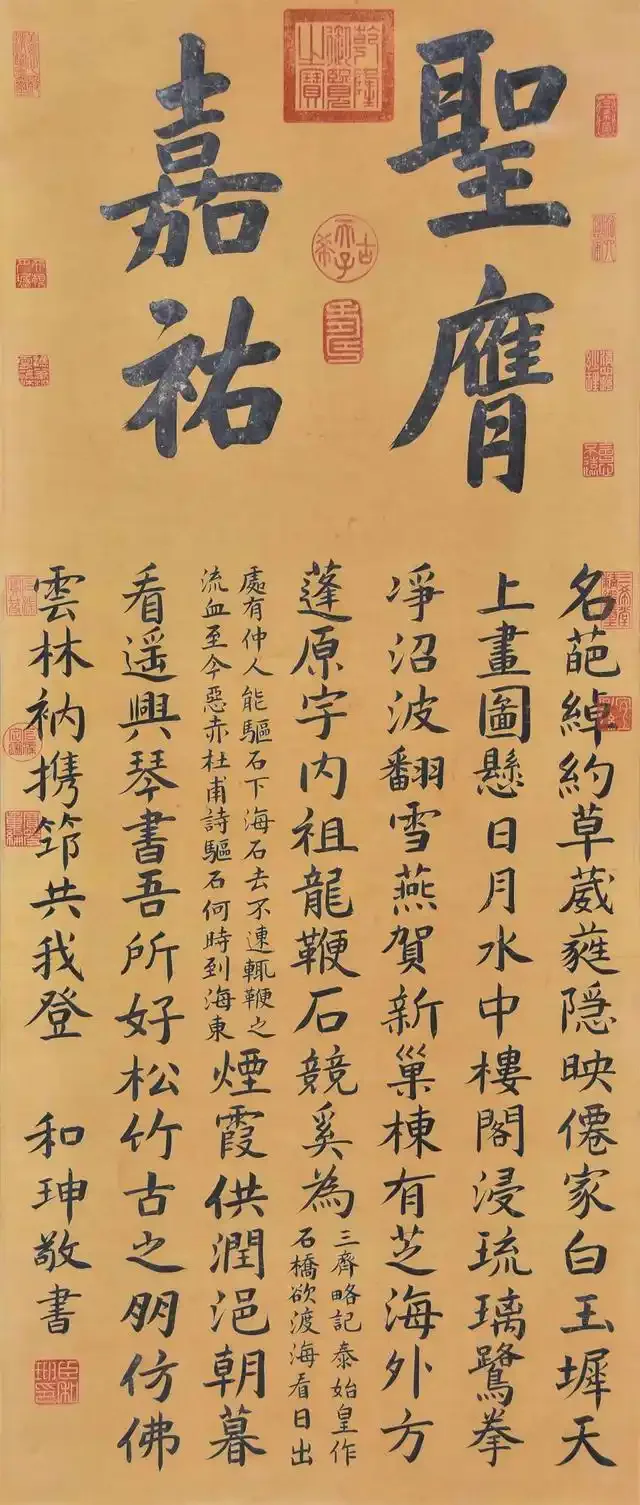 聖膺
嘉祐
乾隆御覽之寶
古希天子
名葩綽約草葳蕤隱映僊家白玉墀天
上畫圖懸日月水中樓閣浸琉璃鷺拳
凈沼波翻雪燕賀新巢棟有芝海外方
蓬原宇内祖龍鞭石競奚為
三齊略記泰始皇作
石橋欲渡海看日出
處有仲人能驅石下海石去不速輒鞭之
流血至今惡赤杜甫詩驅石何時到海東
煙霞供潤浥朝暮
看遥興琴書吾所好松竹古之朋仿佛
雲林衲携笻共我登 和珅敬書